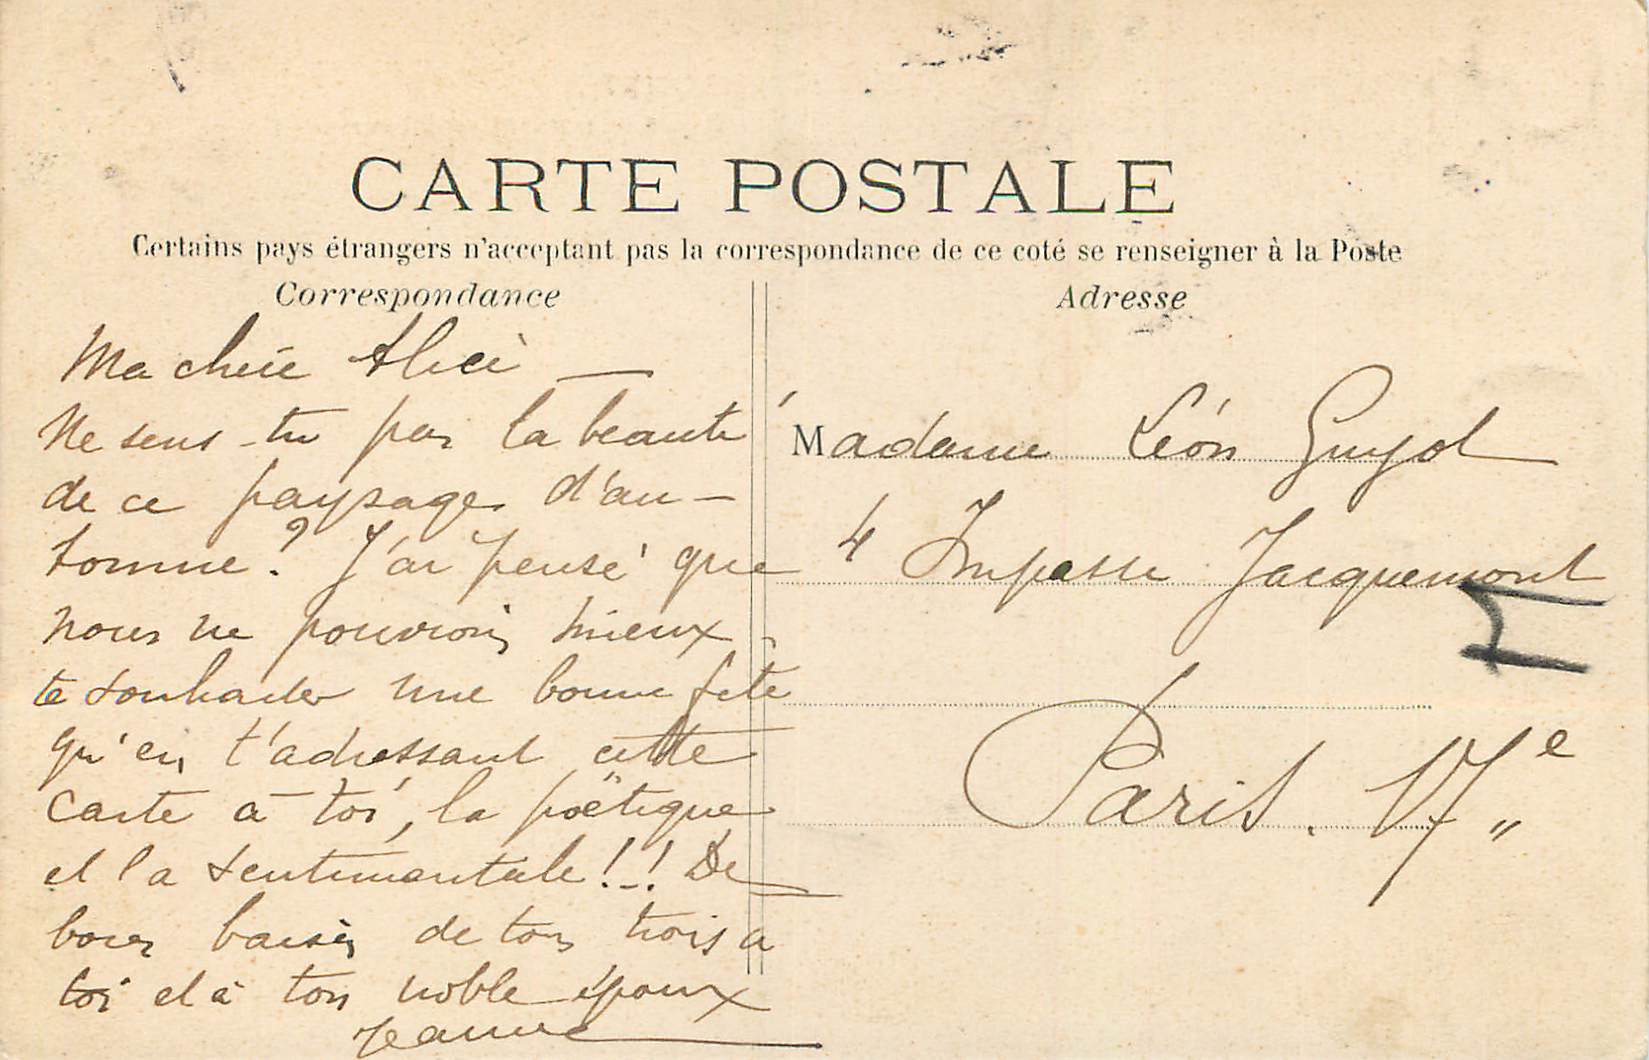 CARTE POSTALE
Certains pays étrangers n'acceptant pas la correspondance de ce coté se renseigner à la Poste
Correspondance
Ma chère Alice
Ne sens-tu pas la beauté
de ce paysage d'au-
tomne ? J'ai pensé que
nous ne pouvions mieux
te souhaiter une bonne fête
qu'en t'adressant cette
carte à toi, la poëtique
et la sentimentale !-! De
bons baisers de tous trois a
toi et à ton noble époux
Jeanne
Adresse
Madame Léon Guyot
4 Impasse Jacquemont
Paris. 17e